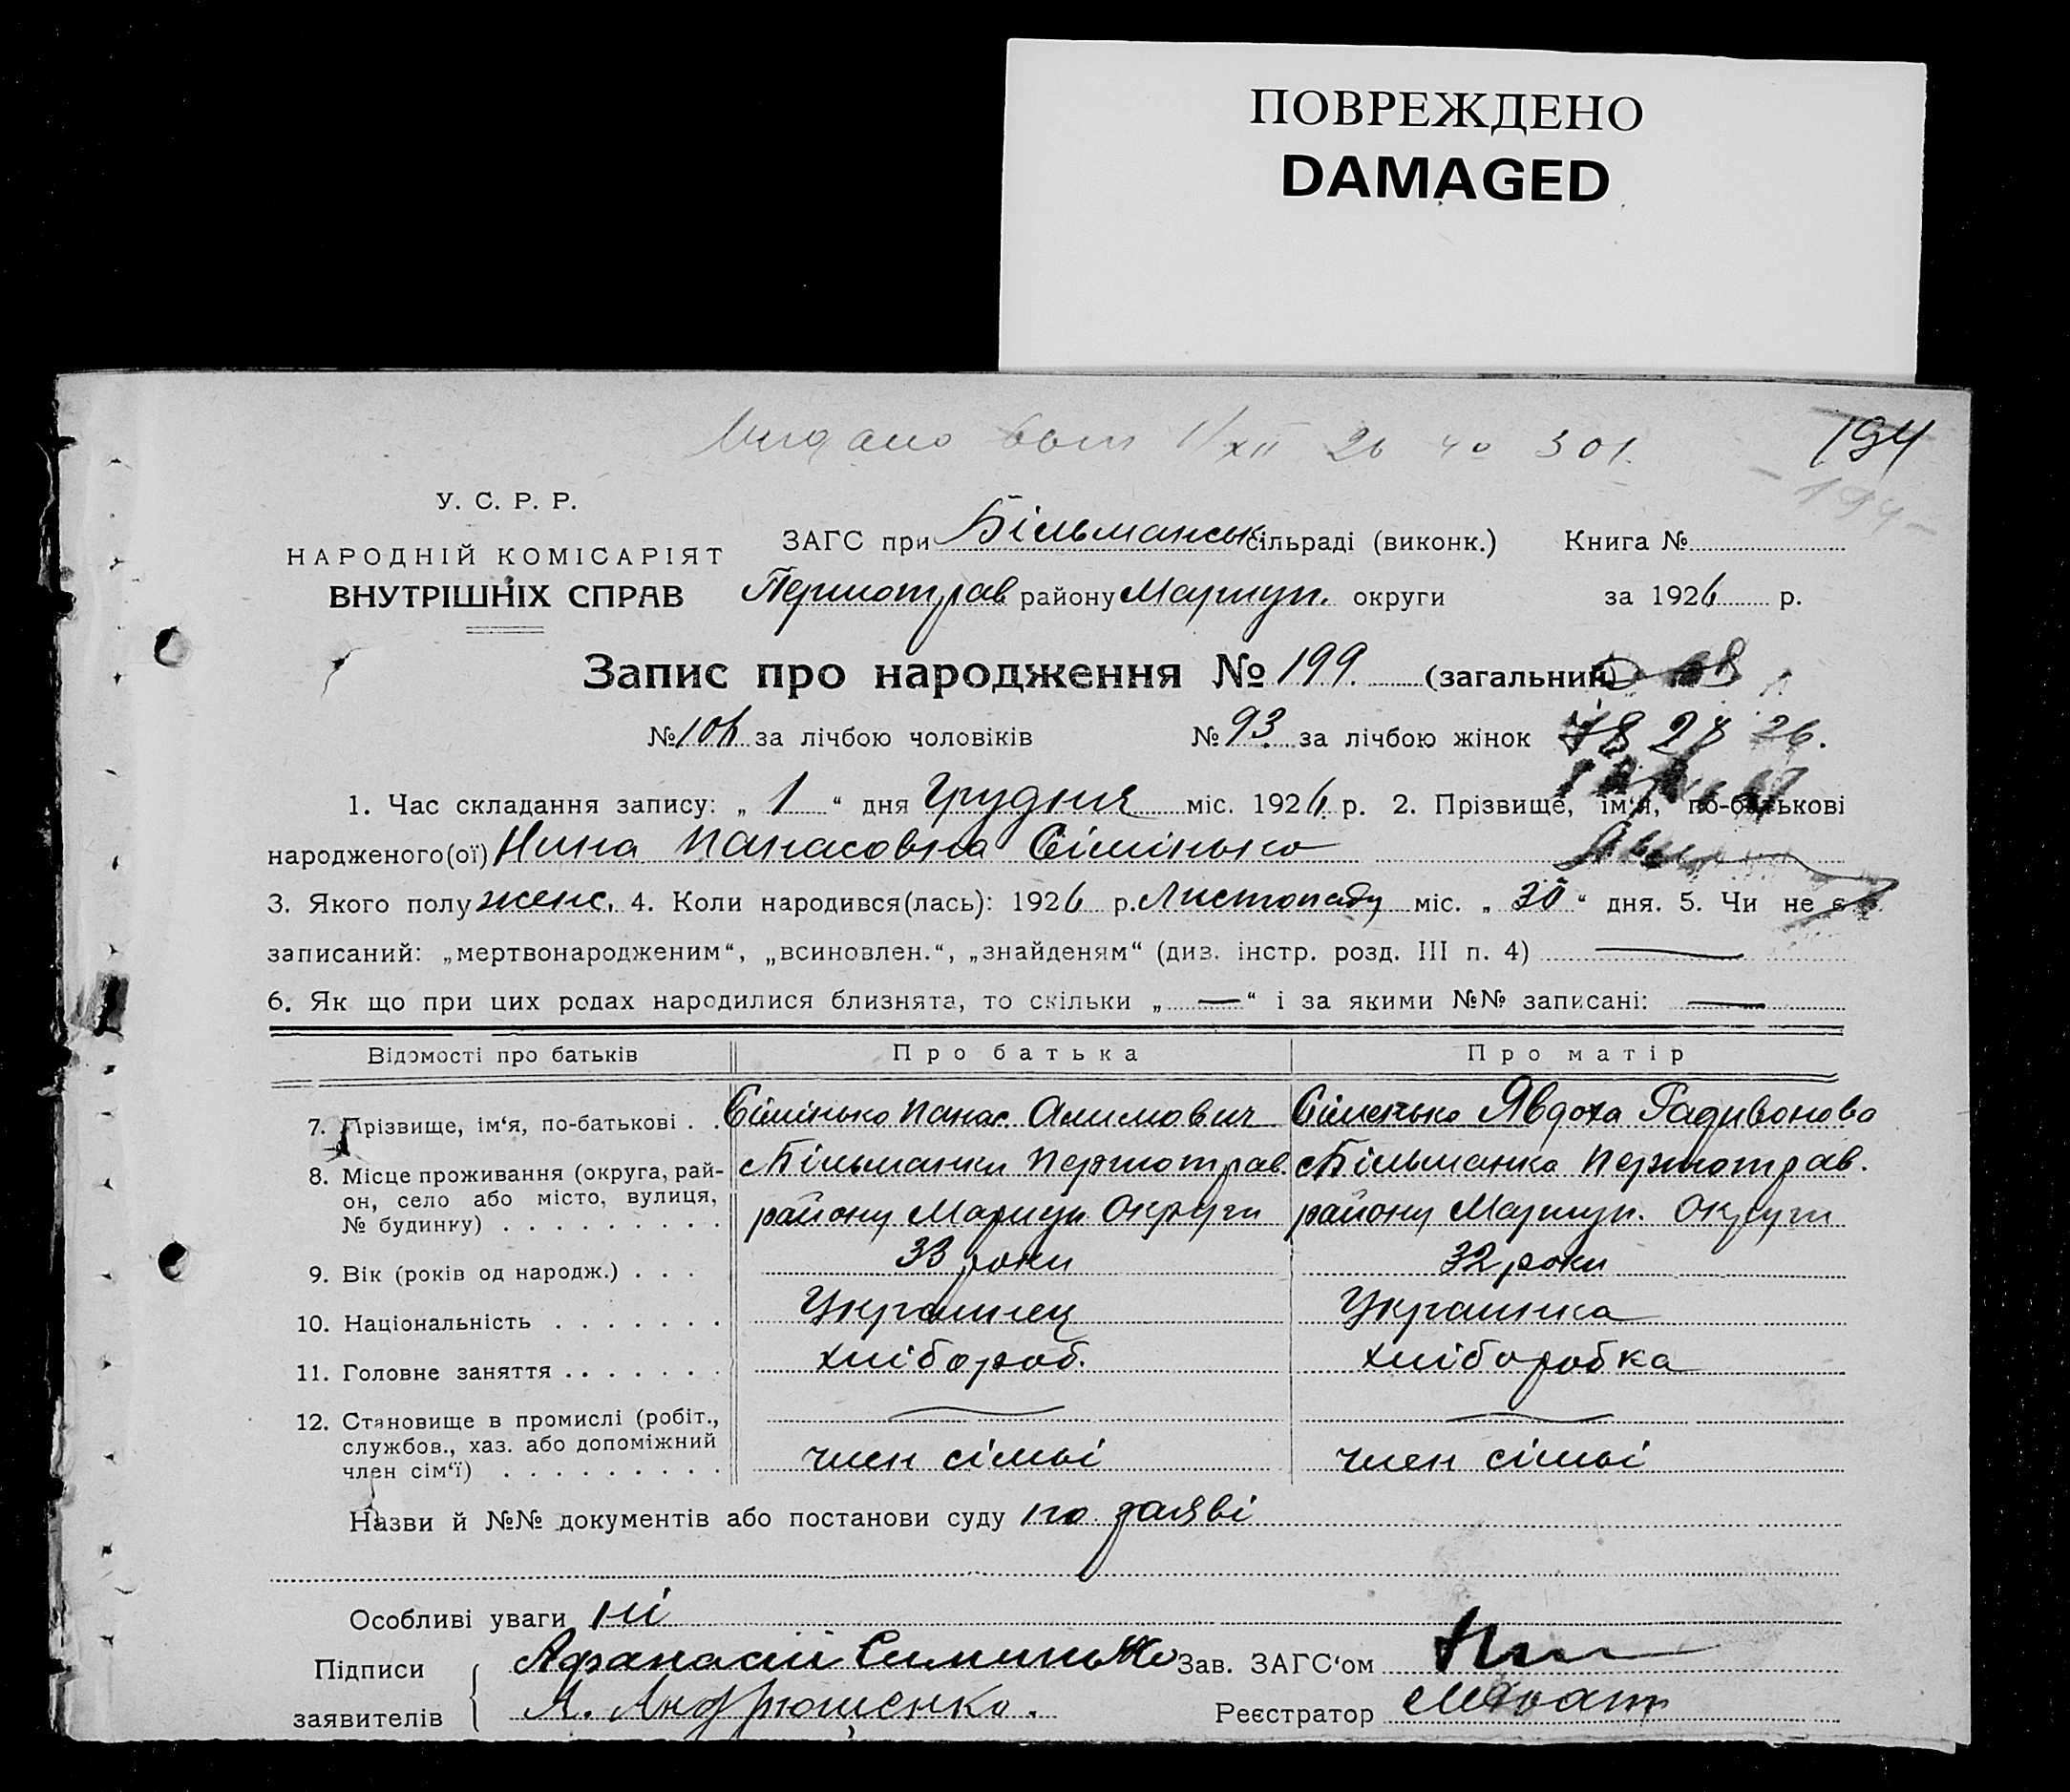 ПОВРЕЖДЕНО
DAMAGED
194
У. С. Р. Р.
НАРОДНІЙ КОМІСАРІЯТ
ВНУТРІШНІХ СПРАВ
ЗАГС при Більманськ сільраді (виконк.) Книга №
Першотрав району Маріуп. округи за 1926 р.
Запис про народження № 199. (загальний)
№ 106 за лічбою чоловіків № 93. за лічбою жінок
1. Час складання запису: „ 1 “ дня Грудня міс. 1926 р. 2. Прізвище, ім‘я, по-батькові
народженого(ої) Нина Панасовна Сімінько
3. Якого полу женс. 4. Коли народився(лась): 1926 р. Листопаду міс. „ 30 “ дня. 5. Чи не є
записаний: „мертвонародженим“, „всиновлен.“, „знайденям“ (див. інстр. розд. III п. 4) —
6. Як що при цих родах народилися близнята, то скільки „ — “ і за якими №№ записані: —
Відомості про батьків Про батька Про матір
7. Прізвище, ім‘я, по-батькові . . Сімінько Панас Алимович Сіменько Явдоха Радивонова
8. Місце проживання (округа, рай- с Більманки Першотрав. с Більманка Першотрав.
он, село або місто, вулиця,
№ будинку) . . . . . . . . . району Маріуп Округи району Маріуп. Округи
9. Вік (років од народж.) . . . 33 роки 32 роки
10. Національність . . . . . . . Украинец Украинка
11. Головне заняття . . . . . . . хлібороб. хліборобка
12. Становище в промислі (робіт., — —
службов., хаз. або допоміжний
член сім‘ї) . . . . . . . . . член сімьі член сімьі
Назви й №№ документів або постанови суду по заяві
Особливі уваги ні
Підписи Афанасий Симинько Зав. ЗАГС‘ом
заявителів А. Андрющенко. Реєстратор